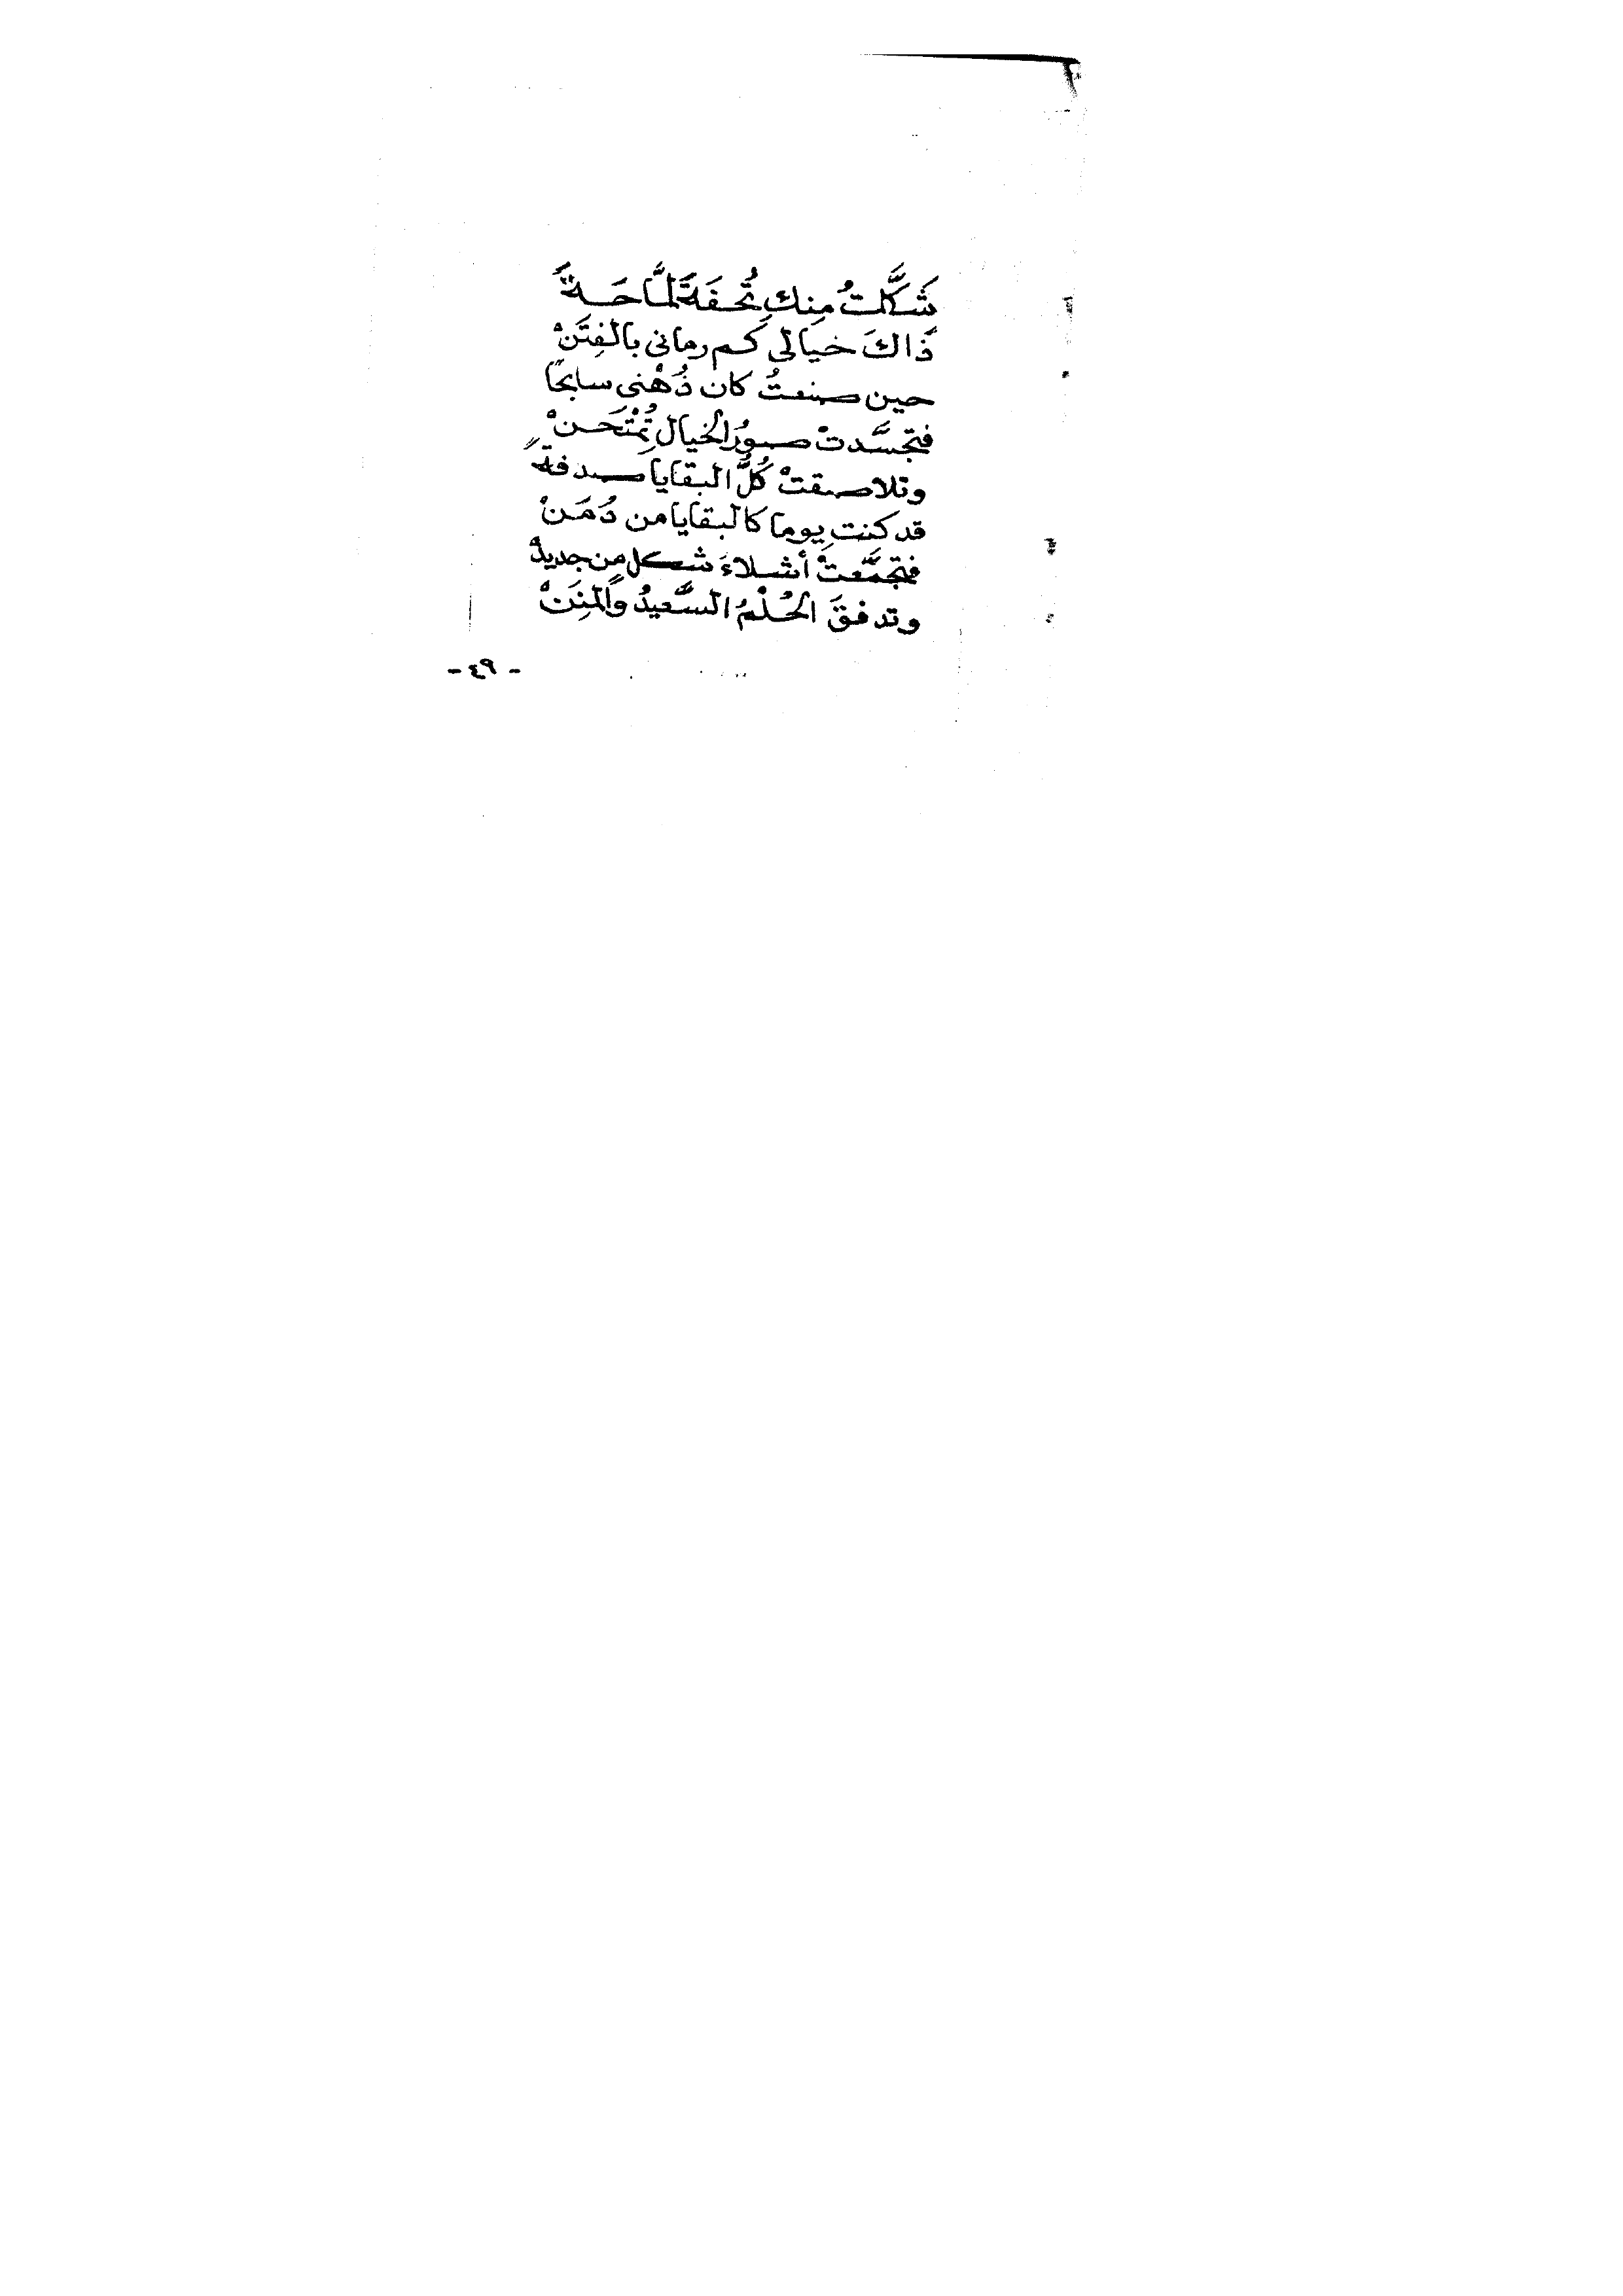 شَكَّلتُ مِنكِ تُحفَةً لمَّاحَةً
ذَاكَ خيالى كَم رمانى بالفِتَنْ
حين صنعتُ كان ذُهْنى سابحًا
فتجسَّدتْ صورُ الخيال تُمْتَحَنْ
وتلاصقتْ كُلُّ البقايا صدفةً
قد كنتِ يوما كالبقايا من دُمَنْ
فتجمَّعتْ أشلاءَ شكل من جديدْ
وتدفقَ الحُلْمُ السَّعيدُ والمِنَنْ
- ٤٩ -